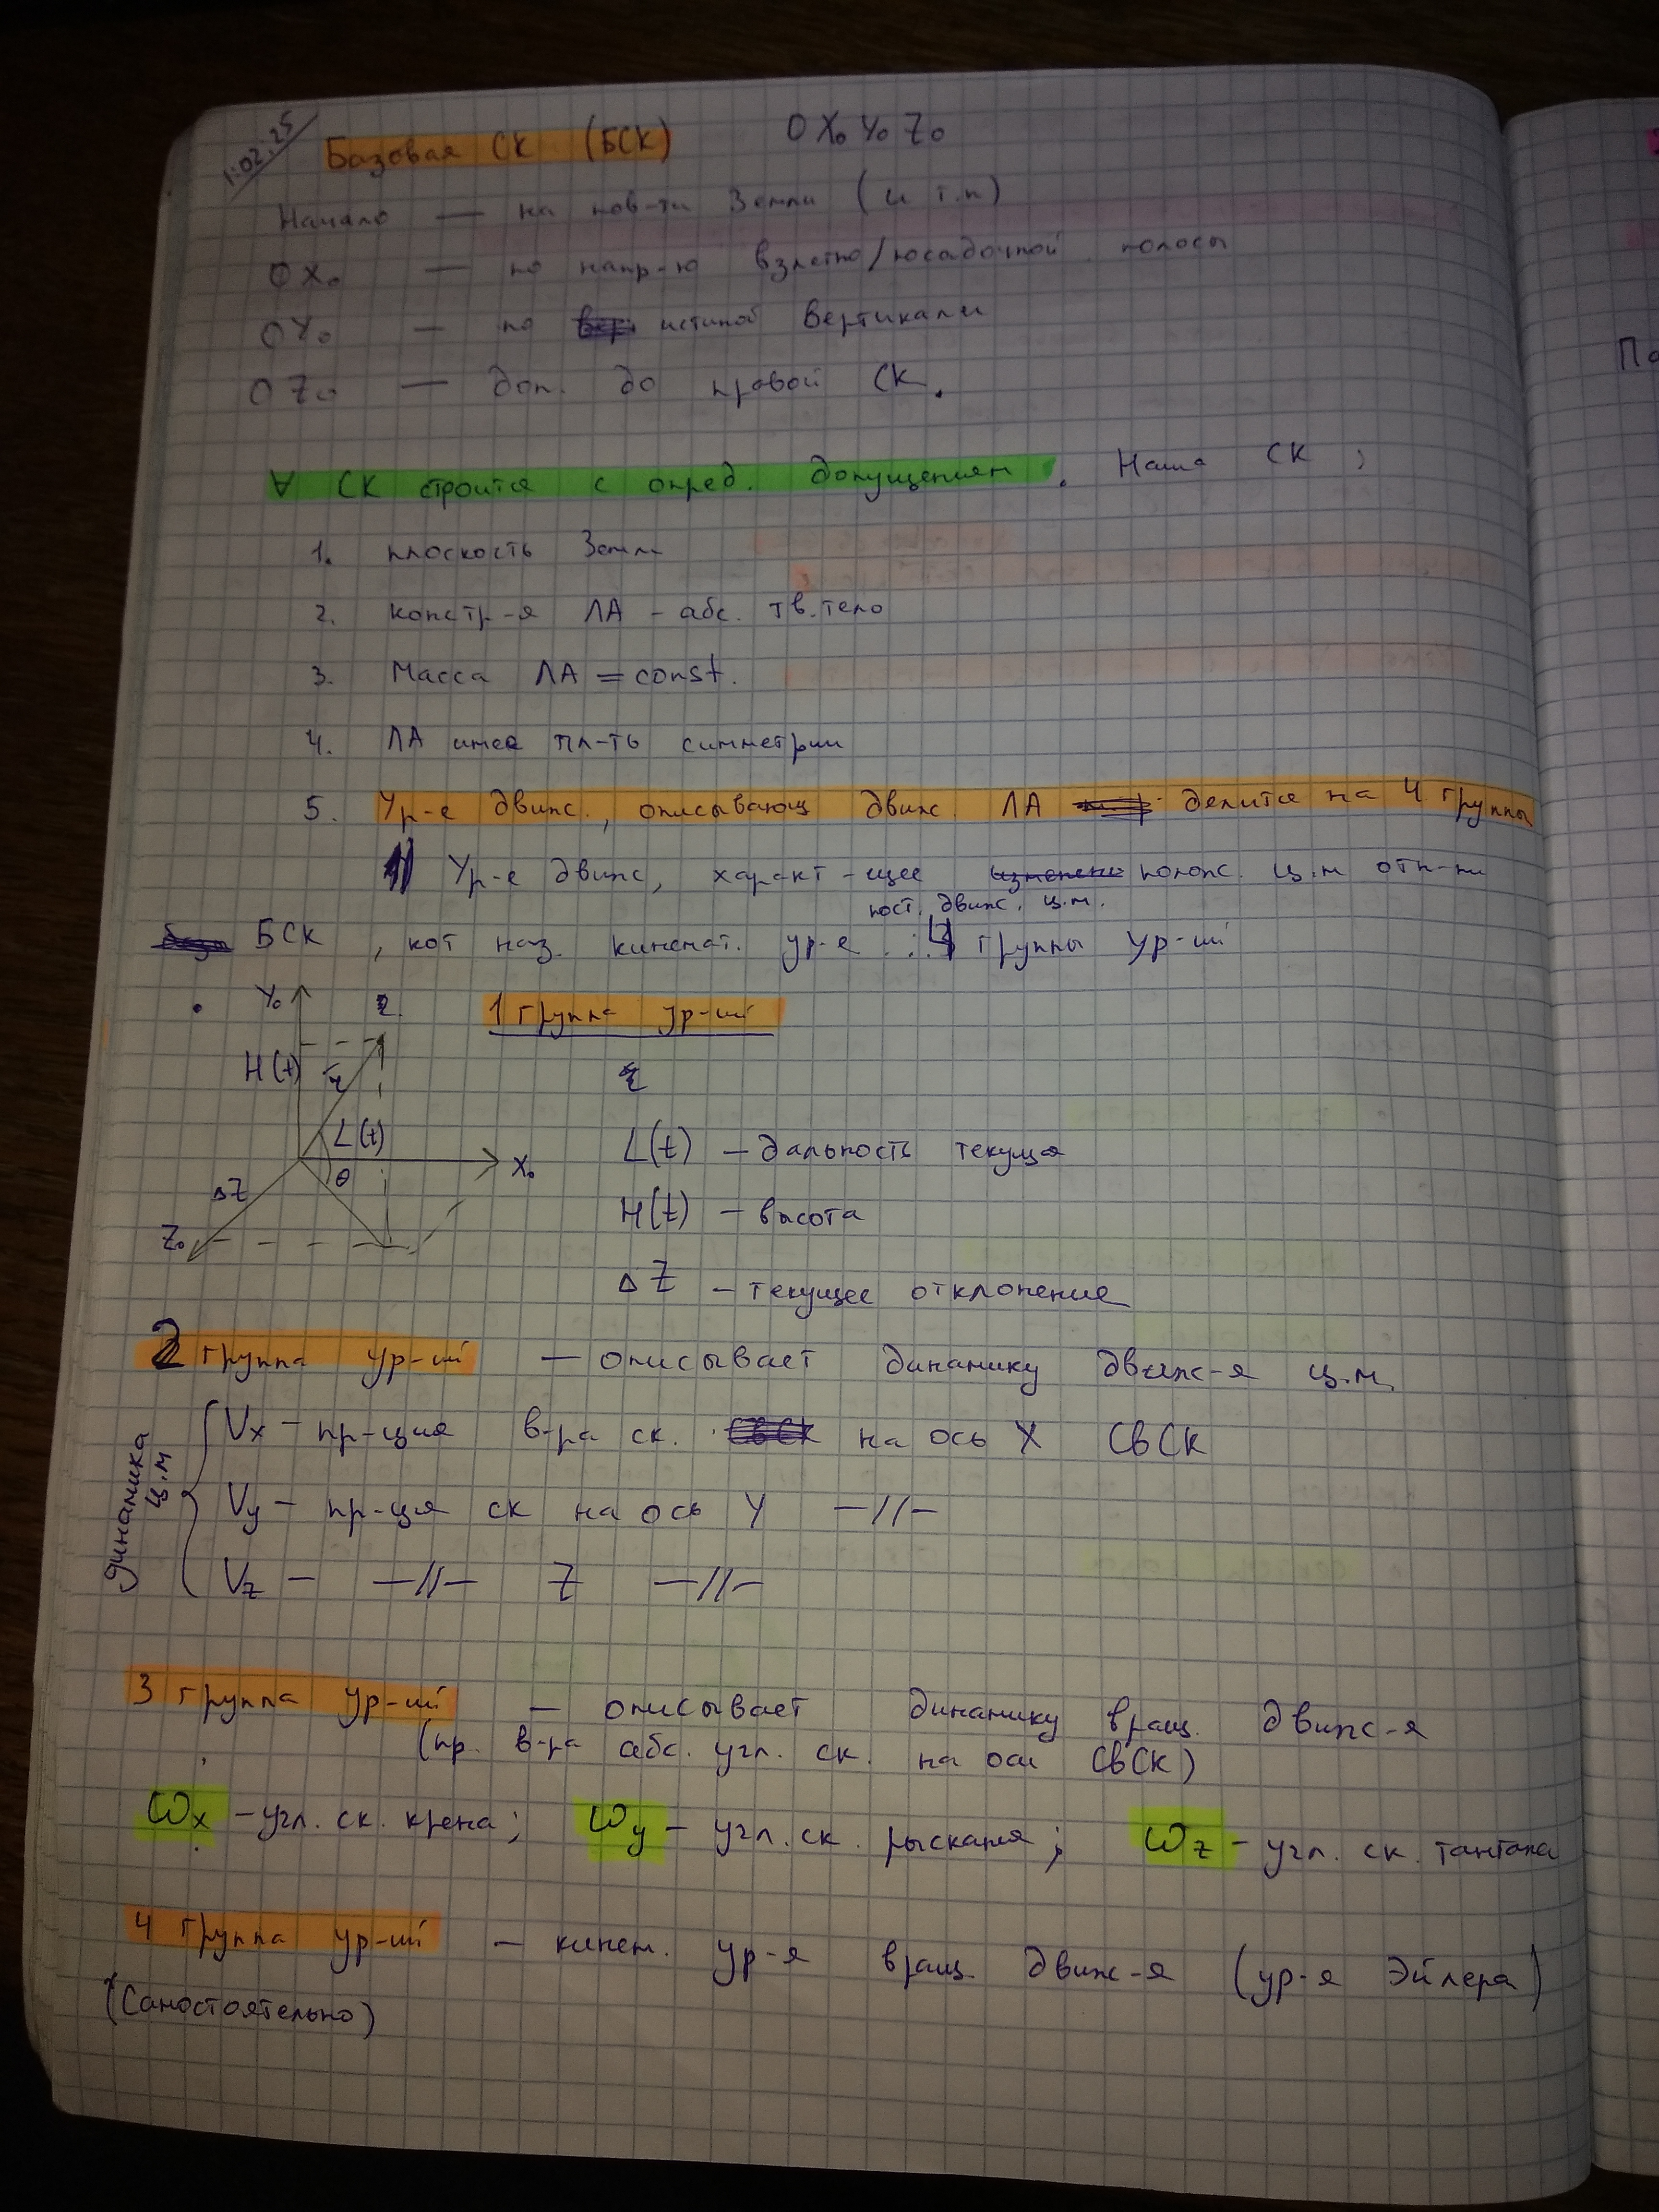 1.02.25
Базовая СК (БСК) OX₀Y₀Z₀
Начало — на пов-ти Земли (и т.п)
OX₀ — по напр-ю взлетно/посадочной полосы
OY₀ — по истиной вертикали
OZ₀ — доп. до правой СК.
∀ СК строится с опред. допущениям. Наша СК:
1. плоскость Земли
2. констр-я ЛА - абс. тв. тело
3. Масса ЛА = const.
4. ЛА имее пл-ть симметрии
5. Ур-е движ., описывающ движ. ЛА делится на 4 группы
1) Ур-е движ, характ-щее полож. ц.м отн-ни
пост. движ. ц.м.
БСК, кот наз. кинемат. ур-е группы ур-ий
Y₀
1 группа ур-ий
H(t) r
L(t)
θ X₀
ΔZ
Z₀
L(t) — дальность текуща
H(t) — высота
ΔZ — текущее отклонение
2 группа ур-ий — описывает динамику движ-я ц.м.
динамика ц.м
Vx — пр-ция в-ра ск. на ось X СвСК
Vy — пр-ция ск на ось Y —//—
Vz — —//— Z —//—
3 группа ур-ий — описывает динамику вращ. движ-я
(пр. в-ра абс. угл. ск. на оси СвСК)
ωx — угл. ск. крена; ωy — угл. ск. рыскания; ωz — угл. ск. тангажа
4 группа ур-ий — кинем. ур-я вращ. движ-я (ур-я Эйлера)
(Самостоятельно)
По